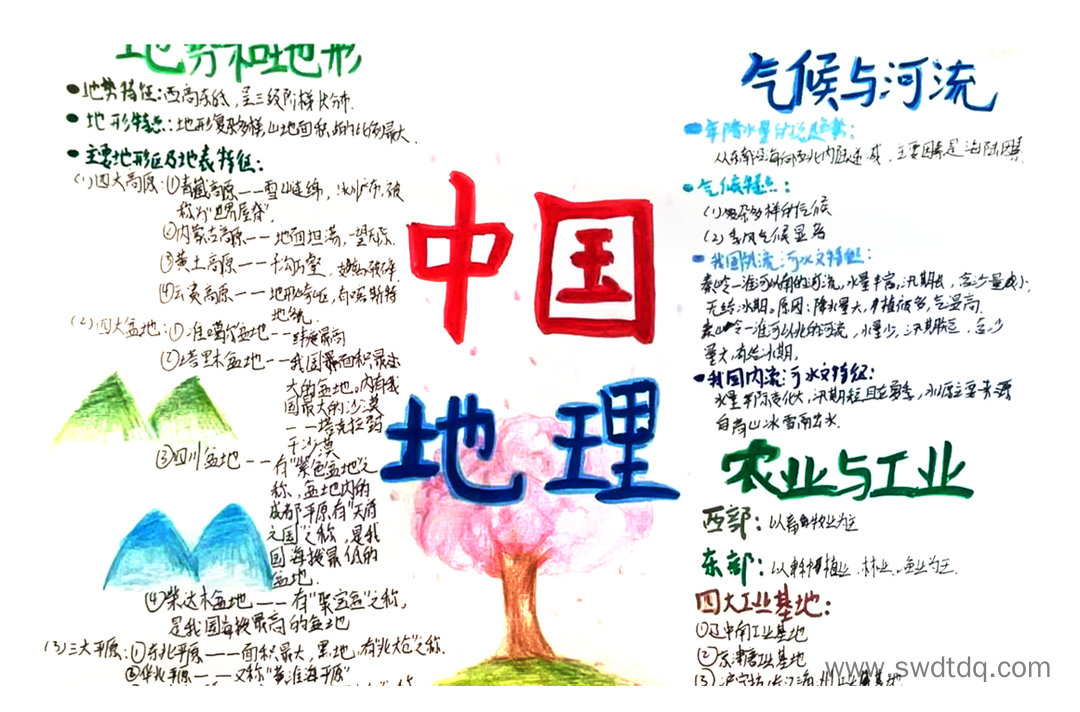 地势和地形
●地势特征:西高东低,呈三级阶梯状分布.
●地形特点:地形复杂多样,山地面积占的比例最大.
●主要地形区及地表特征:
(1)四大高原:①青藏高原——雪山连绵,冰川广布,被
称为"世界屋脊".
②内蒙古高原——地面坦荡,一望无际.
③黄土高原——千沟万壑,支离破碎.
④云贵高原——地形崎岖,有喀斯特
地貌.
(2)四大盆地:①准噶尔盆地——纬度最高
②塔里木盆地——我国最面积最大
大的盆地。内有我
国最大的沙漠
——塔克拉玛
干沙漠
③四川盆地——
有"紫色盆地"之
称,盆地内的
成都平原有"天府
之国"之称,是我
国海拔最低的
盆地.
④柴达木盆地——有"聚宝盆"之称,
是我国海拔最高的盆地
(3)三大平原:①东北平原——面积最大,黑地,有"北大仓"之称.
②华北平原——又称"黄淮海平原"
中国
地理
气候与河流
年降水量的
从东南沿海向西北内陆递减,主要因素是海陆因素
●气候特点:
(1)复杂多样的气候
(2)季风气候显著
我国外流河水文特征:
秦岭—淮河以南的河流,水量丰富,汛期长,含沙量小,
无结冰期。原因:降水量大,植被多,气温高.
秦岭—淮河以北的河流,水量少,汛期短,含沙
量大,有结冰期.
●我国内流河水文特征:
汛期短且在夏季,水源主要来源
自高山冰雪融水.
农业与工业
西部:以畜牧业为主
东部:以种植业、林业、渔业为主.
四大工业基地:
①辽中南工业基地
②京津唐工业基地
www.swdtdq.com